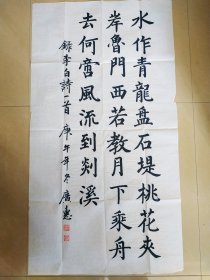 水作青龍盘石堤桃花夾
岸魯門西若教月下乘舟
去何啻風流到剡溪
錄李白詩一首 庚午年冬 廣惠